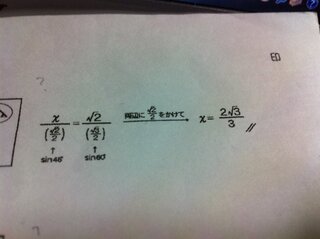 x/(√2/2) = √2/(√3/2) 両辺に √2/2 をかけて x = 2√3/3 //
↑ ↑
sin45° sin60°